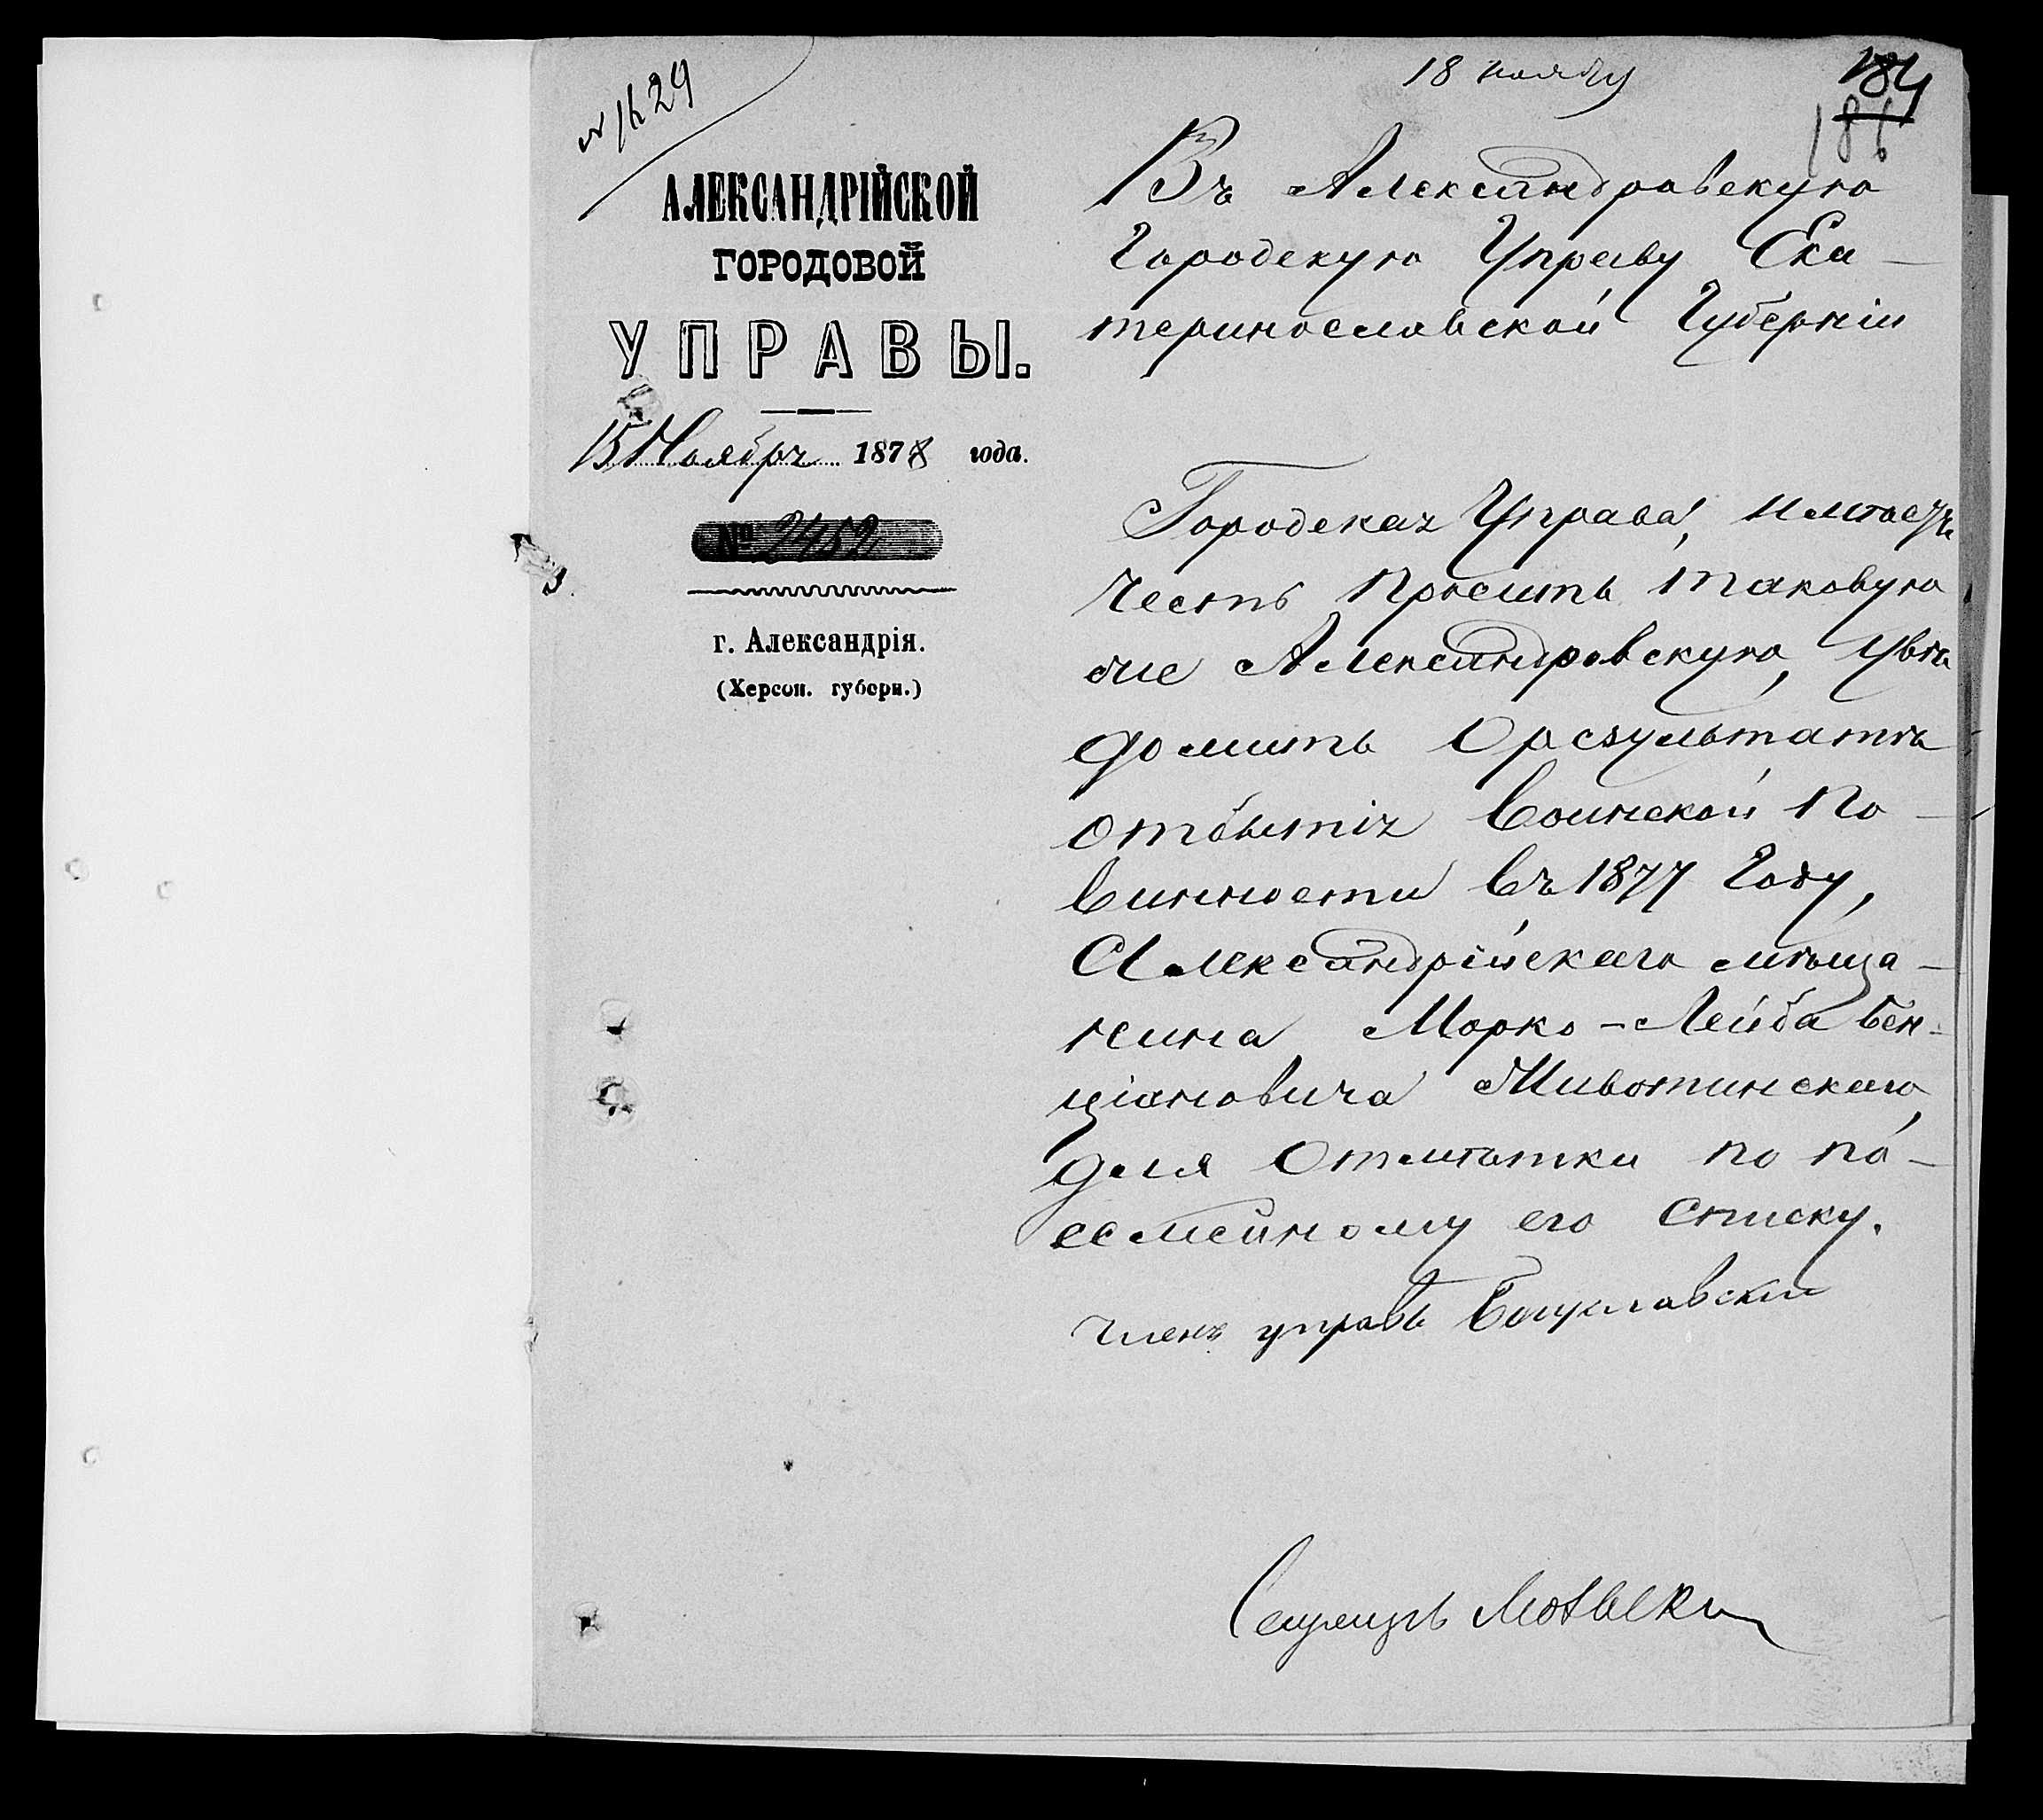 18 ноября
184
186
№ 1629
АЛЕКСАНДРІЙСКОЙ
ГОРОДОВОЙ
УПРАВЫ.
15 Ноября 1878 года.
№ 2452
г. Александрія.
(Херсон. губерн.)
Въ Александровскую
Городскую Управу Ека-
теринославской Губерніи
Городская Управа, имѣетъ
честь просить таковую
же Александровскую, увѣ
домить о результатѣ
отбытія воинской по-
винности въ 1877 году,
Александрійскаго мѣща-
нина Морко-Лейба Бен-
ціановича Животинскаго,
для отмѣтки по по-
семейному его списку.
Членъ управы
Секретарь